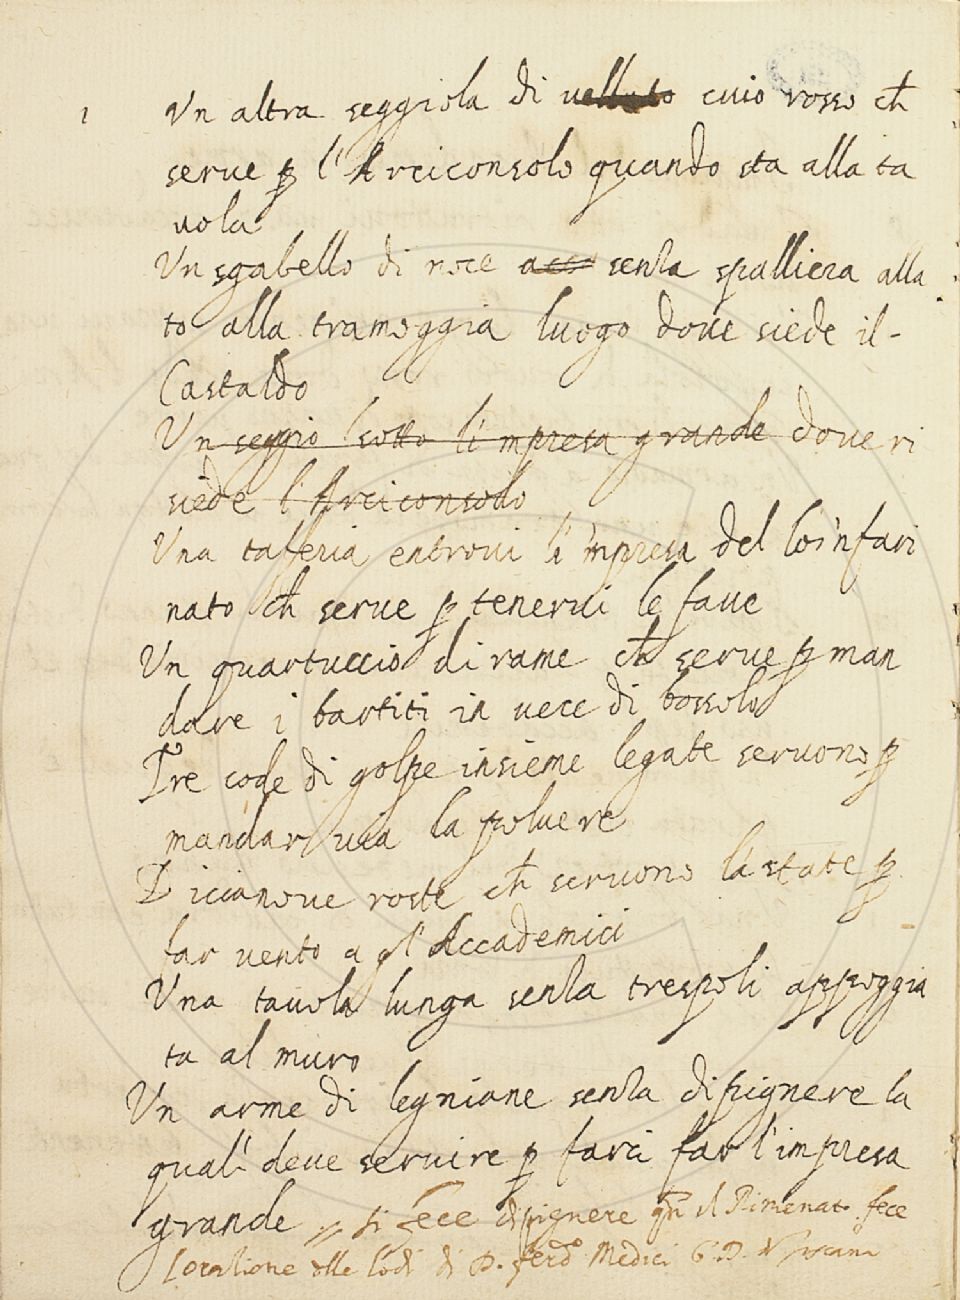 1 Un altra seggiola di velluto cuio rosso ch
serve p l'Arciconsolo quando sta alla ta
vola
Un sgabello di noce acco senza spalliera alla
to alla tramoggia luogo dove siede il-
Castaldo
Un seggio sotto l'impresa grande dove ri
siede l'Arciconsolo
Una tafferia entrovi l'impresa del lo'infari
nato ch serve p tenervi le fave
Un quartuccio di rame ch serve p man
dare i partiti in vece di bossolo
Tre code di golpe insieme legate servono p
mandar via la polvere
Dicianove roste ch servono la state p
far vento a gl'Accademici
Una tavola lunga senza trespoli appoggia
ta al muro
Un arme di legniane senza dipignere la
quali deve servire p farci far l'impresa
grande si fece dipignere qn il Rimenato fece
l'orazione delle lodi di P. ferdo Medici G. D. di Toscana